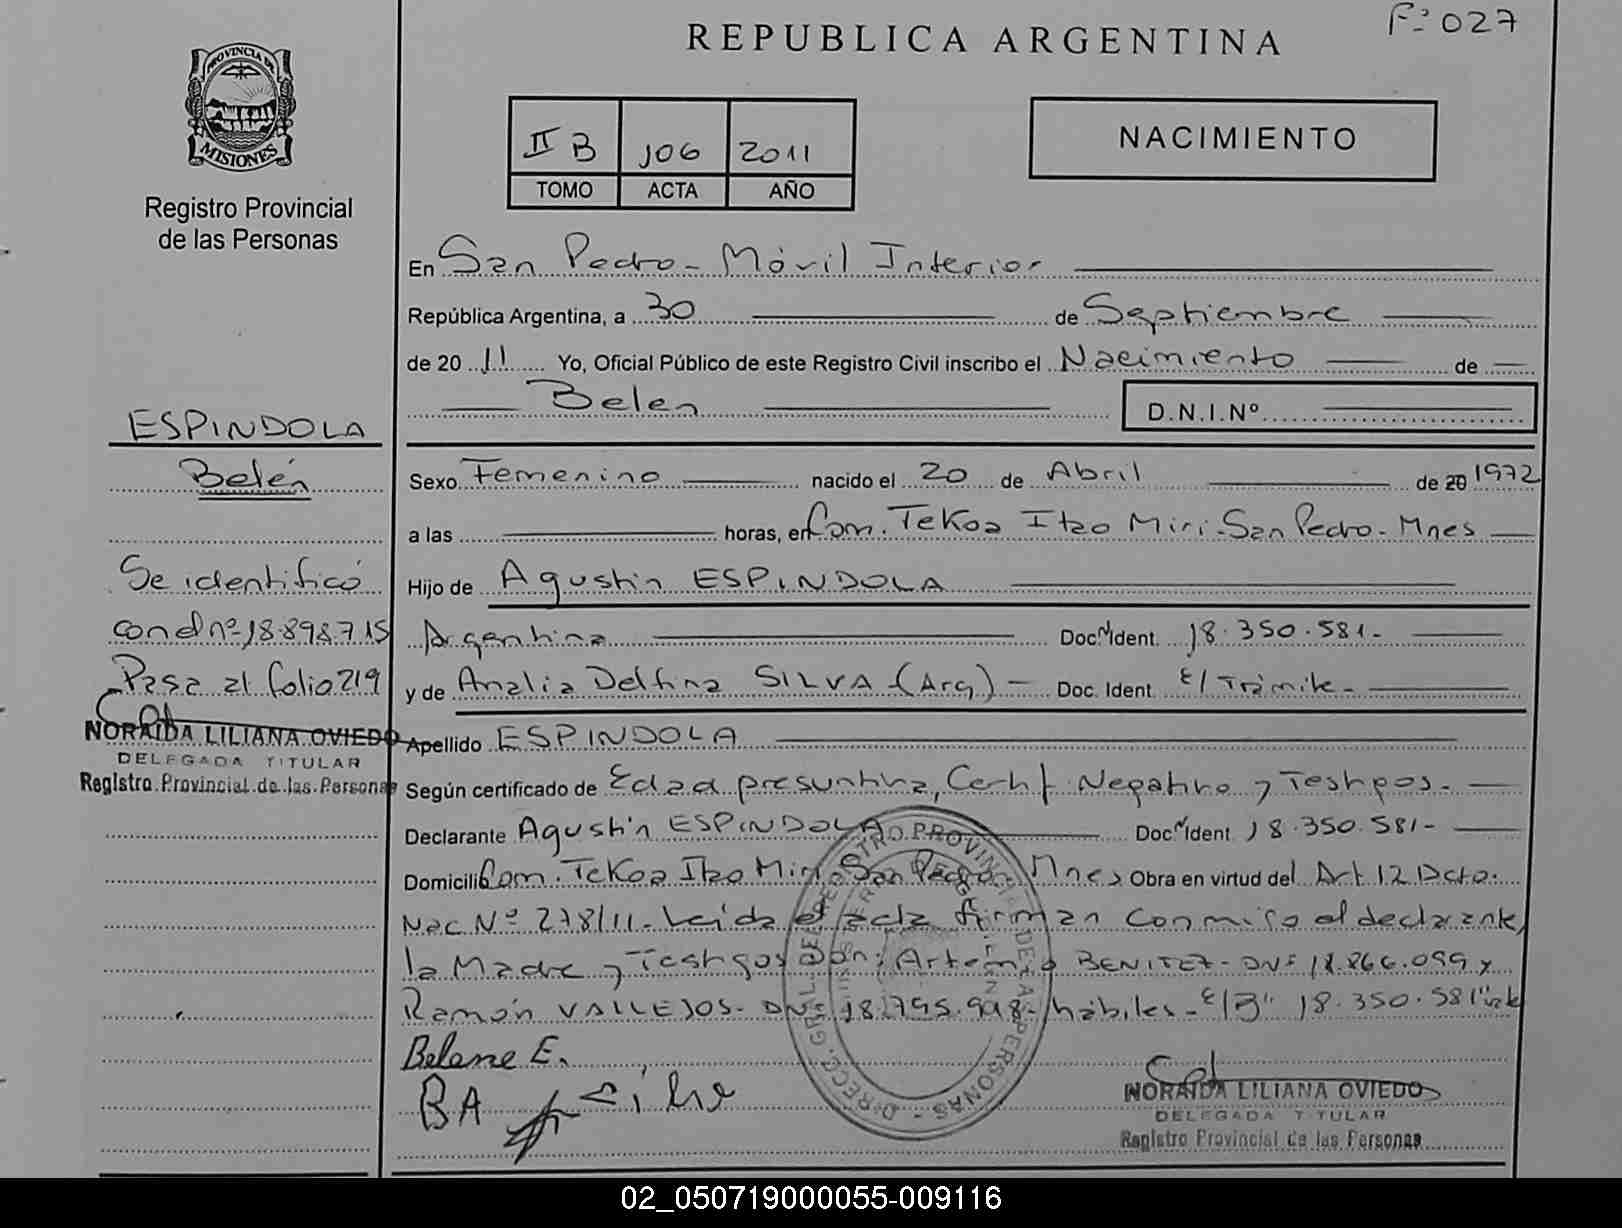 F=027
REPUBLICA ARGENTINA
PROVINCIA DE
MISIONES
Registro Provincial
de las Personas
II B 106 2011
TOMO ACTA AÑO
NACIMIENTO
En San Pedro- Móvil Interior
República Argentina, a 30 de Septiembre
de 20 11 Yo, Oficial Público de este Registro Civil inscribo el Nacimiento de
Belen D.N.I.Nº
ESPINDOLA
Belén
Se identificó
con el nº-18.898.715
Pasa al folio 219
NORAIDA LILIANA OVIEDO
DELEGADA TITULAR
Registro Provincial de las Personas
Sexo Femenino nacido el 20 de Abril de 20 1972
a las horas, en Com. Tekoa Itao Miri-San Pedro-Mnes
Hijo de Agustin ESPINDOLA
Argentina Doc. Ident. 18.350.581-
y de Analia Delfina SILVA-(Arg)- Doc. Ident. E/ Trámite-
Apellido ESPINDOLA
Según certificado de Edad presuntiva, Certif. Negativo y Testigos.
Declarante Agustin ESPINDOLA Doc. Ident. 18.350.581-
Domicilio Com. Tekoa Itao Miri San Pedro Mnes Obra en virtud del Art 12 Dcto.
Nac Nº 278/11-Leida el acta firman conmigo el declarante,
la Madre y Testigos Don: Artemio BENITEZ-DNI 18.866.099 y
Ramón VALLEJOS- DNI 18.795.998-hábiles-E/B" 18.350.581" vale
Belane E.
BA
DIREC. GRAL. DEL REGISTRO PROVINCIAL DE LAS PERSONAS
NORAIDA LILIANA OVIEDO
DELEGADA TITULAR
Registro Provincial de las Personas
02_050719000055-009116